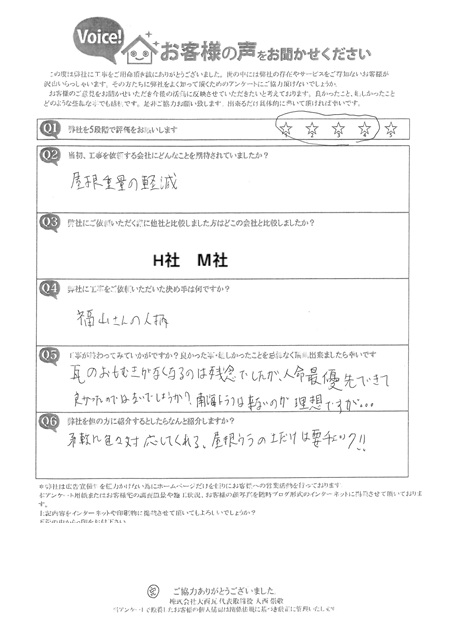 Voice!
お客様の声をお聞かせください
この度は弊社に工事をご用命頂き誠にありがとうございました。世の中には弊社の存在やサービスをご存知ないお客様が
沢山いらっしゃいます。その方たちに弊社をよく知って頂くためのアンケートにご協力頂けないでしょうか。
お客様のご意見をお聞かせいただき今後の活動に反映させていただきたいと考えております。良かったこと、悲しかったこと
どのような些細な事でも結構です。是非ご協力お願い致します。出来るだけ具体的に書いて頂ければ幸いです。
Q1 弊社を5段階で評価をお願いします
1 2 3 4 5
Q2 最初、工事を依頼する会社にどんなことを期待されていましたか?
屋根重量の軽減
Q3 弊社にご依頼いただく際に他社と比較しました方はどこの会社と比較しましたか?
H社 M社
Q4 弊社に工事をご依頼いただいた決め事は何ですか?
福山さんの人柄
Q5 工事が終わってみていかがですか?良かった事・悲しかったことを忌憚なく御記入出来ましたら幸いです
瓦のおもむきがなくなるのは残念でしたが、人命最優先できて
良かったのではないでしょうか?南海トラフは来ないのが理想ですが…
Q6 弊社を他の方に紹介するとしたらなんと紹介しますか?
柔軟に色々対応してくれる、屋根ウラの土だけは要チェック!!
※弊社は広告宣伝を
上記内容をインターネットや印刷物に掲載させて頂いてもよろしいでしょうか?
ご協力ありがとうございました
株式会社大西瓦 代表取締役 大西